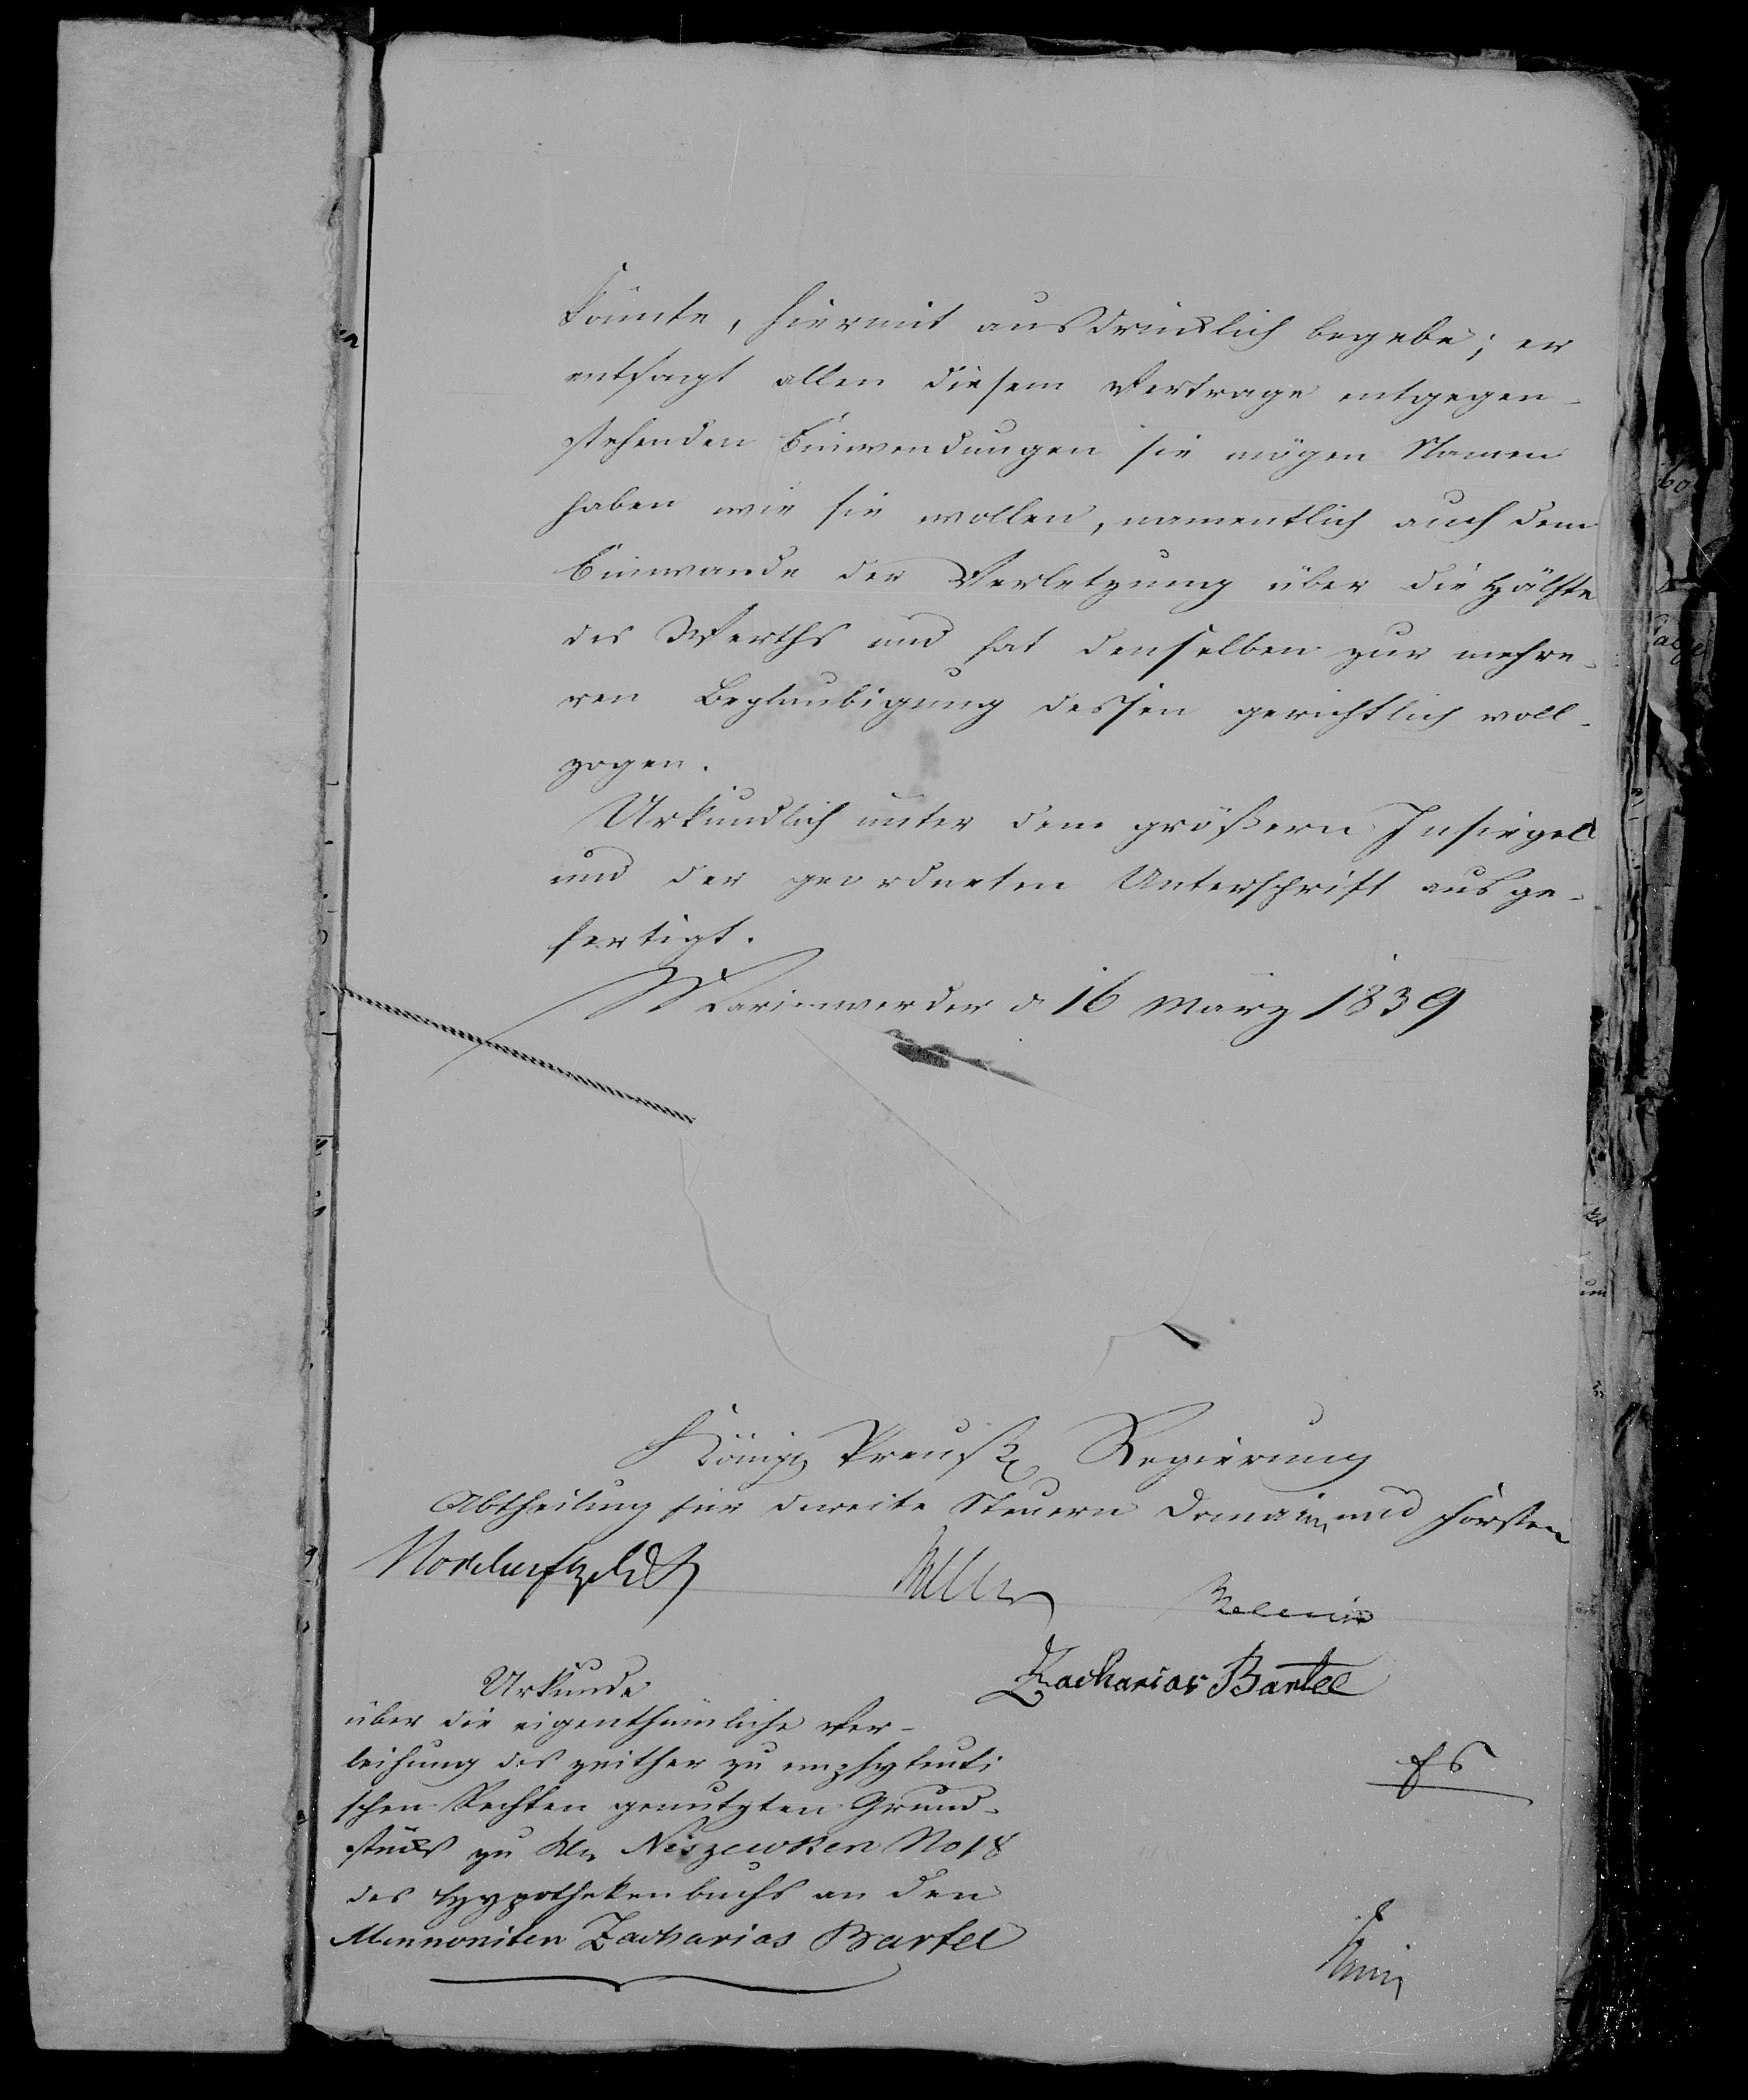 könnte, hiermit ausdrücklich begebe; er
entsagt allen diesem Vertrage entgegen-
stehenden Einwendungen sie mögen Namen
haben wie sie wollen, namentlich auch dem
Einwande der Verletzung über die Hälfte
des Werths und hat denselben zur mehre-
ren Beglaubigung dessen gerichtlich voll-
zogen.
Urkundlich unter dem größern Insiegel
und der geordneten Unterschrift ausge-
fertigt.
Marienwerder d 16 März 1839
Königl Preuß Regierung
Abtheilung für directe Steuern Domain und Forsten
Nordenflycht
Zacharias Bartel
Urkunde
über die eigenthümliche Ver-
leihung des zeither zu emphyteuti
schen Rechten genutzten Grund-
stücks zu Kln Niszewken No 18
des Hypothekenbuchs an den
Mennoniten Zacharias Bartel